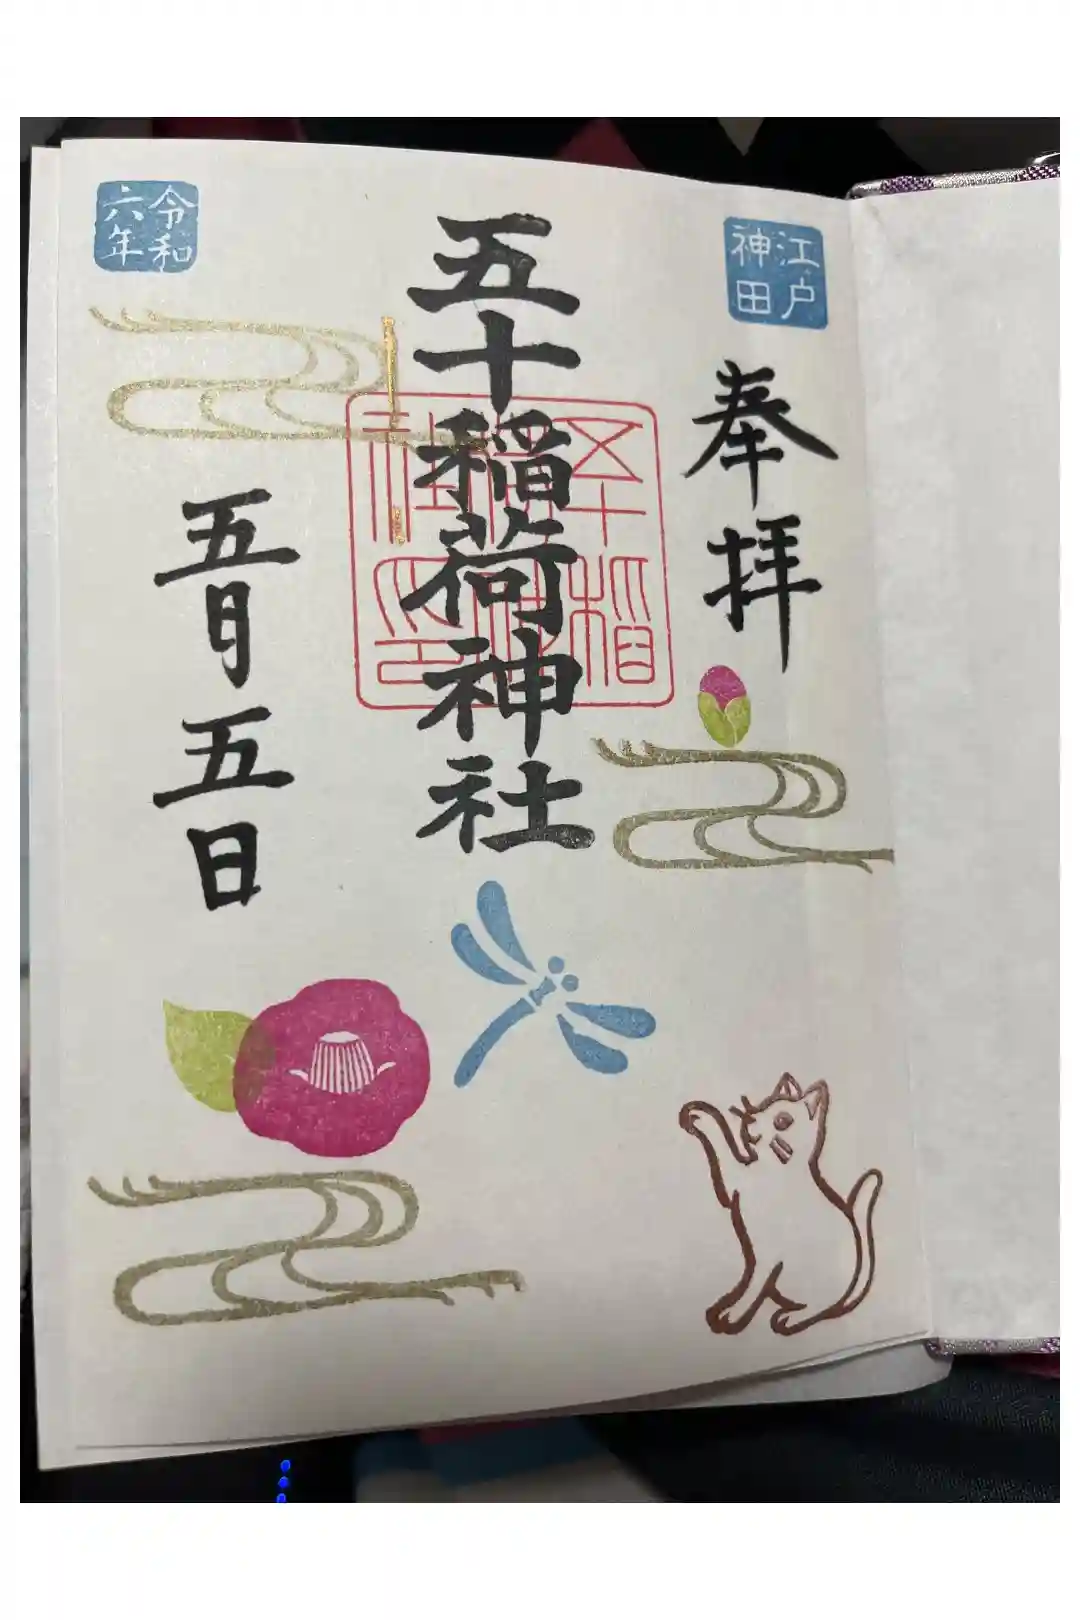 江戸
神田
奉拝
五十稲荷神社
五十稲
社印
令和
六年
五月五日